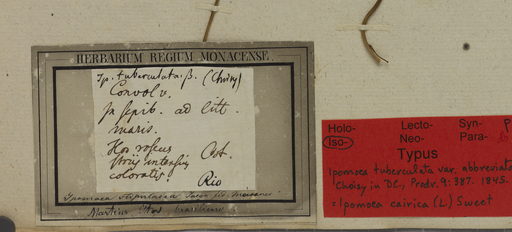 HERBARIUM REGIUM MONACENSE.
Ip. tuberculata. β. (Choisy)
Convolv.
In sepib. ad litt.
maris.
Flos roseus
striis intensius Oct.
coloratis.
Rio
Ipomoea stipulacea Jacq.
Martius Iter brasiliens.
Holo- Lecto- Syn- P
Iso- Neo- Para-
Typus
Ipomoea tuberculata var. abbreviata
Choisy in DC., Prodr. 9: 387. 1845.
= Ipomoea cairica (L.) Sweet